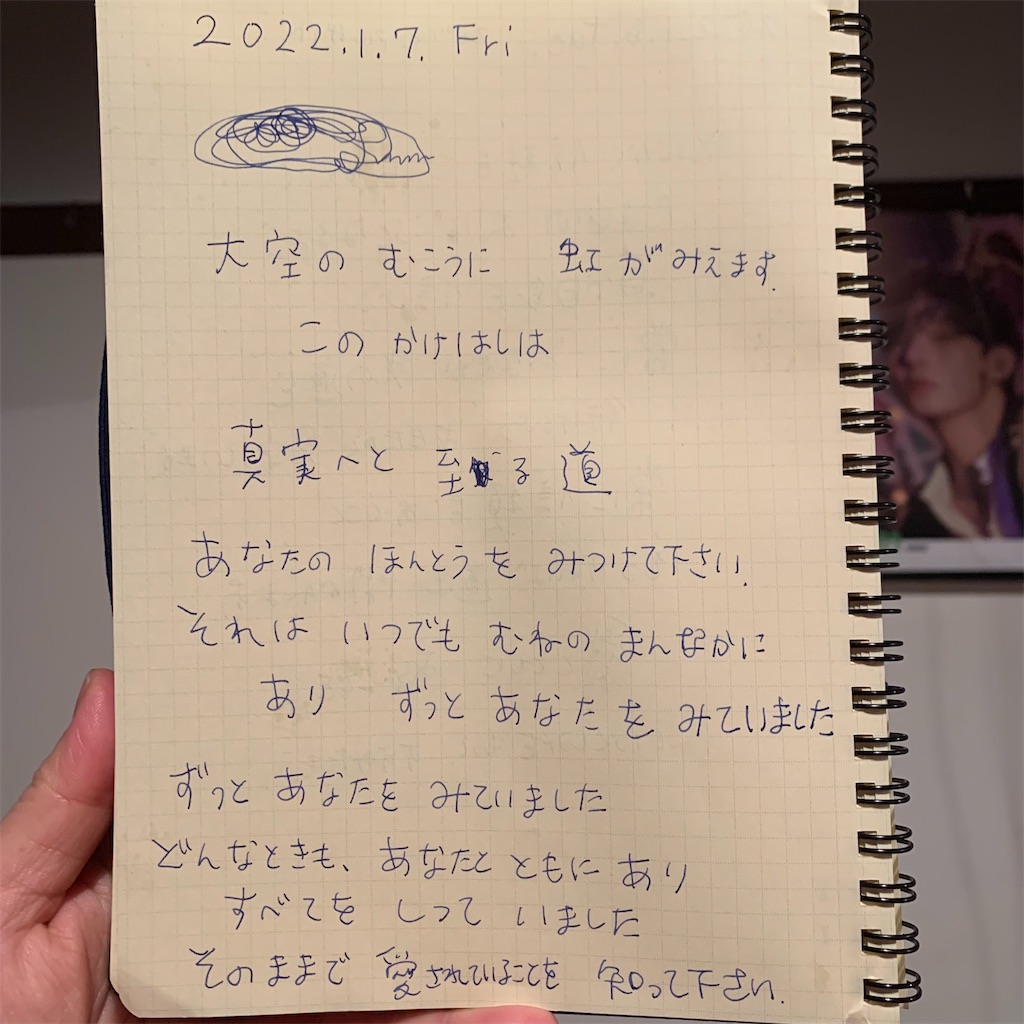 2022.1.7. Fri
大空の むこうに 虹がみえます.
この かけはしは
真実へと 至る 道
あなたの ほんとうを みつけて下さい.
それは いつでも むねの まんなかに
あり ずっと あなたを みていました
ずっと あなたを みていました
どんなときも、あなたと ともに あり
すべてを しって いました
そのままで 愛されていることを 知って下さい.